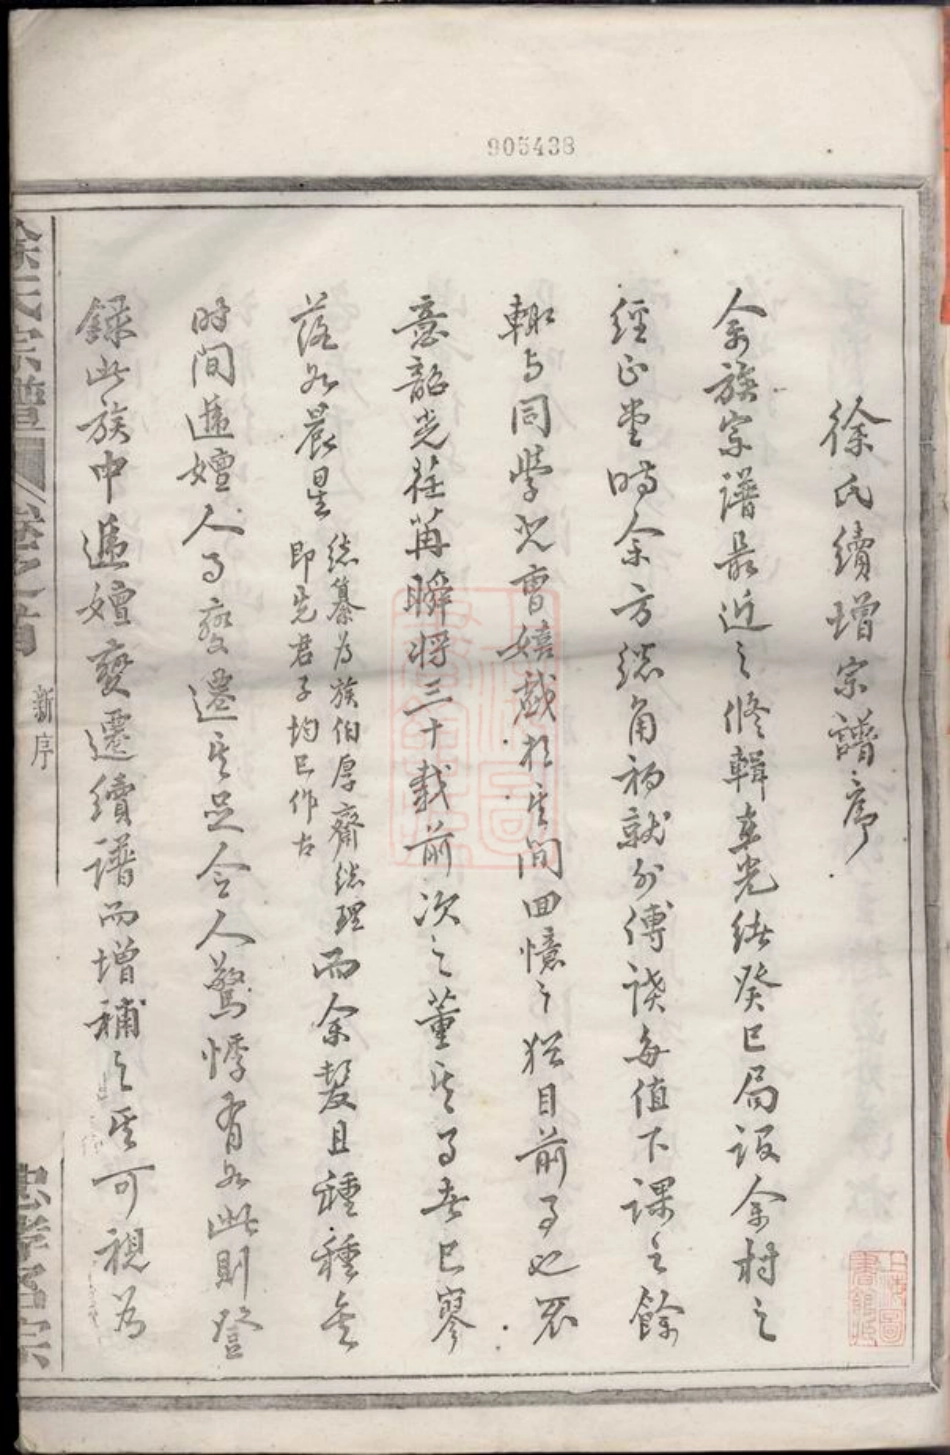 905438
徐氏續增宗譜序
余族宗譜最近之修輯在光緒癸巳局設余村之
經正堂時余方總角初就外傅讀每值下課之餘
輒与同學兒曹嬉戲於其間回憶之猶目前事也不
意韶光荏苒瞬将三十載前次之董其事者已寥
落如晨星
總纂为族伯厚齋總理
即先君子均已作古
而余髮且種種矣
时间遞嬗人事變遷其足令人驚悸有如此則登
録此族中遞嬗變遷續譜而增補之其可視为
徐氏宗譜
卷之首
新序
忠孝名宗
上海圖書館藏